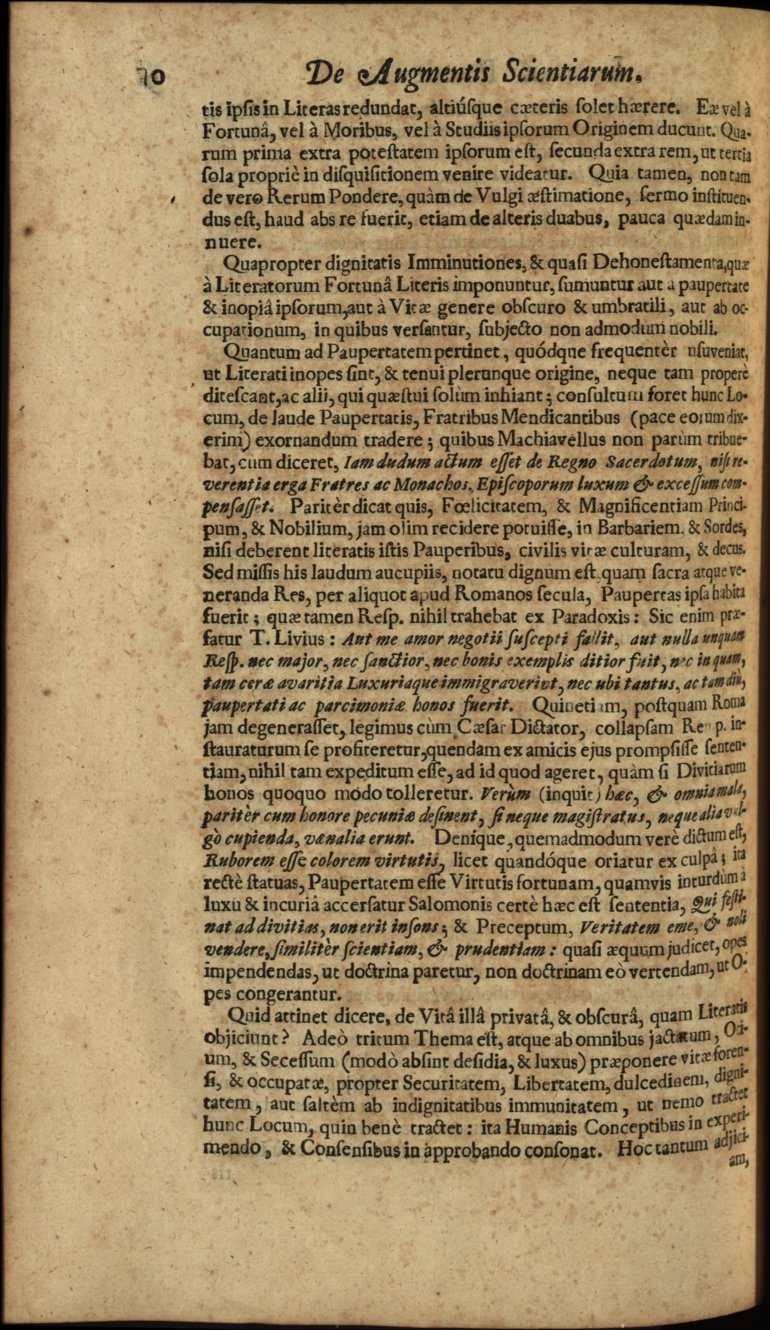 10 De Augmentis Scientiarum.
tis ipsis in Literas redundat, altiúsque cæteris solet hærere. Eæ vel à
Fortunâ, vel à Moribus, vel à Studiis ipsorum Originem ducunt. Qua-
rum prima extra potestatem ipsorum est, secunda extra rem, ut tertia
sola propriè in disquisitionem venire videatur. Quia tamen, non tam
de vero Rerum Pondere, quàm de Vulgi æstimatione, sermo instituen-
dus est, haud abs re fuerit, etiam de alteris duabus, pauca quædam in-
nuere.
Quapropter dignitatis Imminutiones, & quasi Dehonestamenta, quæ
à Literatorum Fortunâ Literis imponuntur, sumuntur aut a paupertate
& inopiâ ipsorum, aut à Vitæ genere obscuro & umbratili, aut ab oc-
cupationum, in quibus versantur, subjecto non admodum nobili.
Quantum ad Paupertatem pertinet, quódque frequentèr usuveniat,
ut Literati inopes sint, & tenui plerunque origine, neque tam properè
ditescant, ac alii, qui quæstui solùm inhiant; consultum foret hunc Lo-
cum, de laude Paupertatis, Fratribus Mendicantibus (pace eorum dix-
erim) exornandum tradere; quibus Machiavellus non parùm tribue-
bat, cùm diceret, Iamdudum actum esset de Regno Sacerdotum, nisi re-
verentia erga Fratres ac Monachos, Episcoporum luxum & excessum com-
pensasset. Paritèr dicat quis, Fœlicitatem, & Magnificentiam Princi-
pum, & Nobilium, jam olim recidere potuisse, in Barbariem, & Sordes,
nisi deberent literatis istis Pauperibus, civilis vitæ culturam, & decus.
Sed missis his laudum aucupiis, notatu dignum est quam sacra atque ve-
neranda Res, per aliquot apud Romanos secula, Paupertas ipsa habita
fuerit; quæ tamen Resp. nihil trahebat ex Paradoxis: Sic enim præ-
fatur T. Livius: Aut me amor negotii suscepti fallit, aut nulla unquam
Resp. nec major, nec sanctior, nec bonis exemplis ditior fuit, nec in quam,
tam ceræ avaritia Luxuriaque immigraverint, nec ubi tantus, ac tam diù,
paupertati ac parcimoniæ honos fuerit. Quinetiam, postquam Roma
jam degenerasset, legimus cùm Cæsar Dictator, collapsam Remp. in-
stauraturum se profiteretur, quendam ex amicis ejus prompsisse senten-
tiam, nihil tam expeditum esse, ad id quod ageret, quàm si Divitiarum
honos quoquo modo tolleretur. Verùm (inquit) hæc, & omnia mala,
paritèr cum honore pecuniæ desinent, si neque magistratus, neque alia vul-
gò cupienda, vænalia erunt. Denique, quemadmodum verè dictum est,
Ruborem esse colorem virtutis, licet quandóque oriatur ex culpâ; ita
rectè statuas, Paupertatem esse Virtutis fortunam, quamvis interdùm à
luxu & incuriâ accersatur Salomonis certè hæc est sententia, Qui festi-
nat ad divitias, non erit insons; & Preceptum, Veritatem eme, & noli
vendere, similitèr scientiam, & prudentiam: quasi æquum judicet, opes
impendendas, ut doctrina paretur, non doctrinam eò vertendam, ut O-
pes congerantur.
Quid attinet dicere, de Vitâ illâ privatâ, & obscurâ, quam Literatis
objiciunt? Adeò tritum Thema est, atque ab omnibus jactatum, Oti-
um, & Secessum (modò absint desidia, & luxus) præponere vitæ foren-
si, & occupatæ, propter Securitatem, Libertatem, dulcedinem, digni-
tatem, aut saltèm ab indignitatibus immunitatem, ut nemo tractet
hunc Locum, quin benè tractet: ita Humanis Conceptibus in experi-
mendo, & Consensibus in approbando consonat. Hoc tantum adjici-
am,